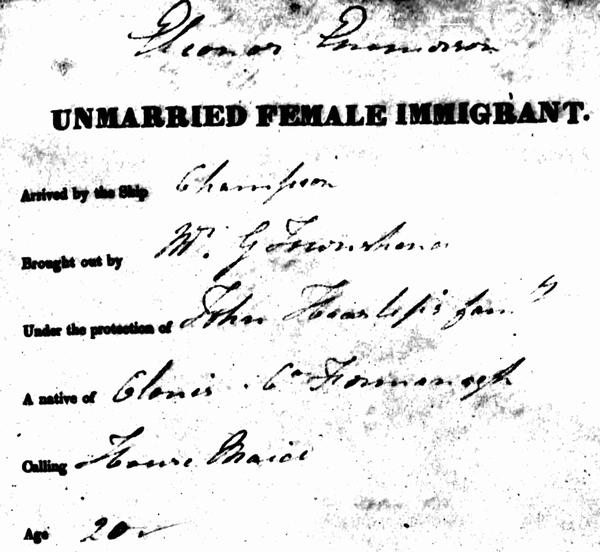 Eleonor Emmerson
UNMARRIED FEMALE IMMIGRANT.
Arrived by the Ship Champion
Brought out by Mr. G Townshend
Under the protection of John Heaslip's fam'y
A native of Clonis Co Fermanagh
Calling House Maid
Age 20